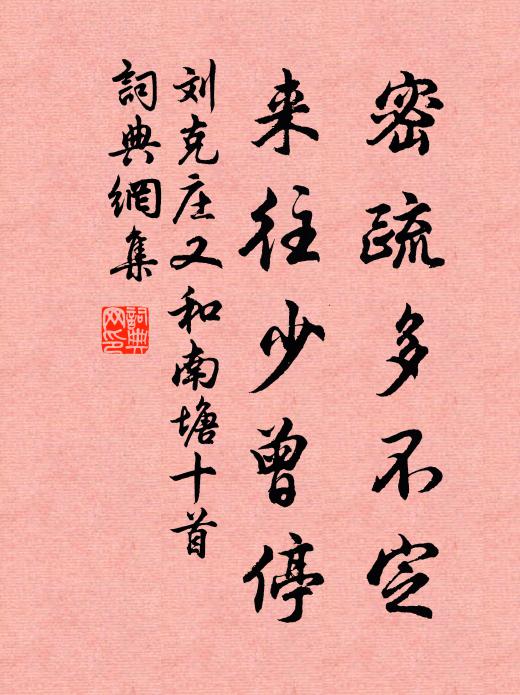 密疏多不定
来往少曾停
刘克庄又和南塘十首
詞典網集
詞典
网印